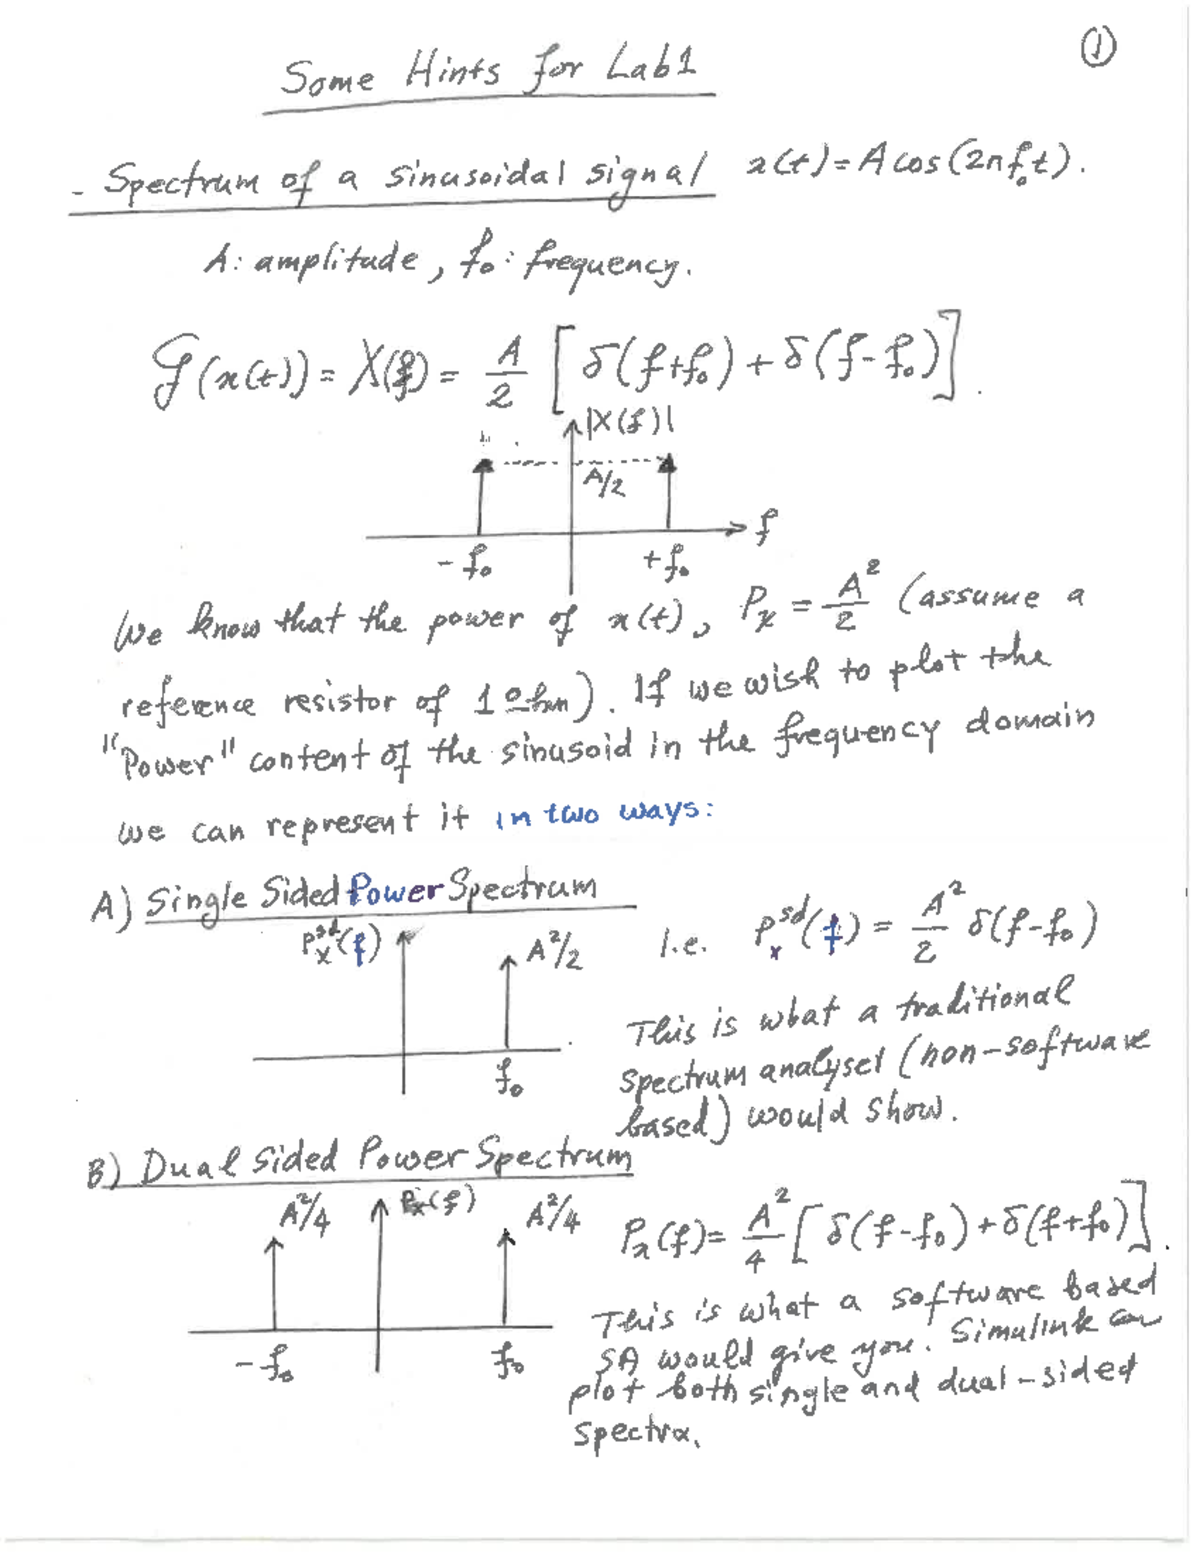 ①
Some Hints for Lab1
- Spectrum of a sinusoidal signal x(t) = A cos(2πf₀t).
A: amplitude, f₀: frequency.
F(x(t)) = X(f) = A/2 [δ(f+f₀) + δ(f-f₀)].
|X(f)|
A/2
f
-f₀ +f₀
We know that the power of x(t), Pₓ = A²/2 (assume a
reference resistor of 1 ohm). If we wish to plot the
"Power" content of the sinusoid in the frequency domain
we can represent it in two ways:
A) Single Sided Power Spectrum
Pₓˢᵈ(f) A²/2 I.e. Pₓˢᵈ(f) = A²/2 δ(f-f₀)
f₀
This is what a traditional
spectrum analyser (non-software
based) would show.
B) Dual Sided Power Spectrum
A²/4 Pₓ(f) A²/4 Pₓ(f) = A²/4 [δ(f-f₀) + δ(f+f₀)].
-f₀ f₀
This is what a software based
SA would give you. Simulink can
plot both single and dual-sided
spectra.